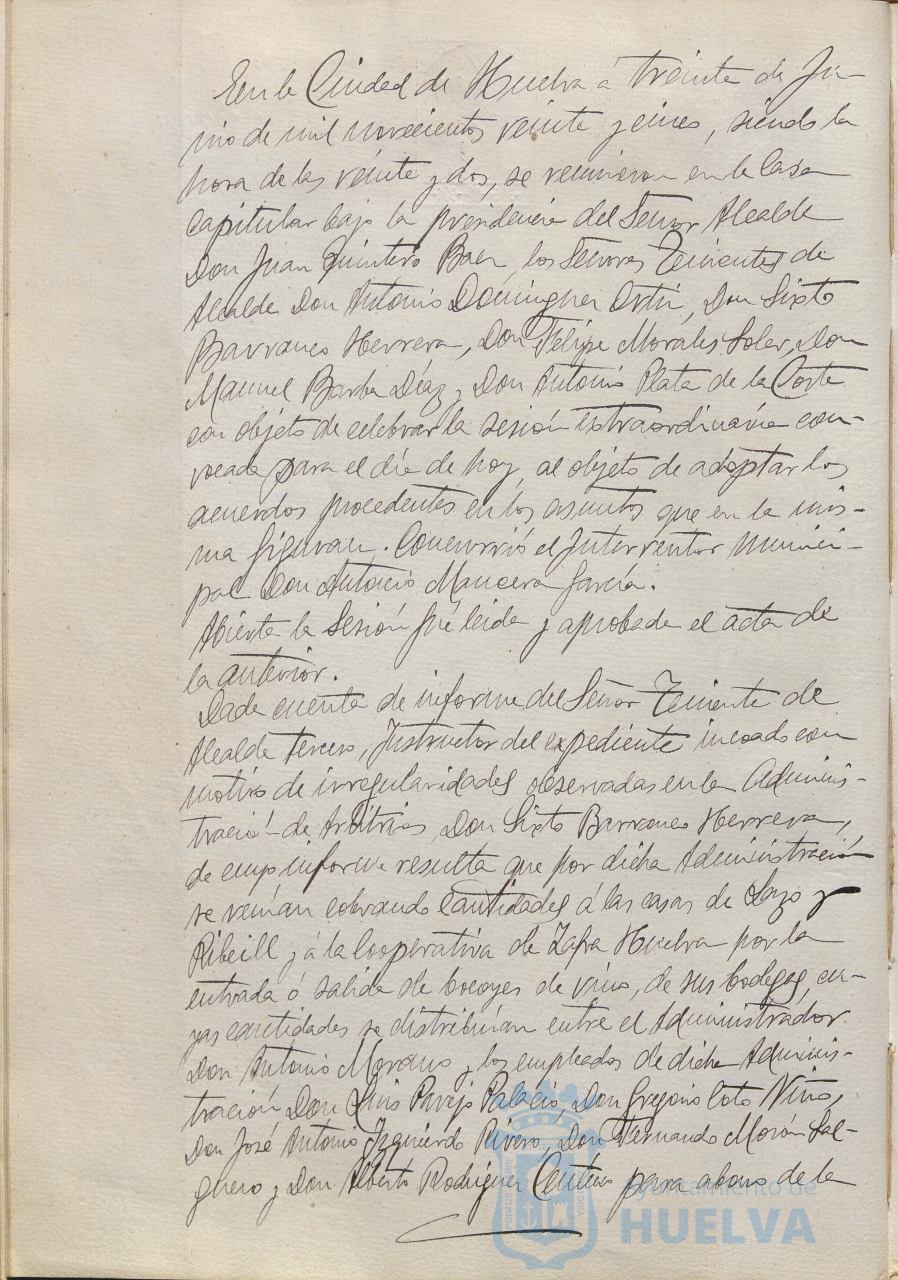 En la Ciudad de Huelva á treinta de Ju-
nio de mil novecientos veinte y cinco, siendo la
hora de las veinte y dos, se reunieron en la Casa
capitular bajo la presidencia del Señor Alcalde
Don Juan Quintero Baez, los Señores Tenientes de
Alcalde Don Antonio Dominguez Ortiz, Don Sixto
Barranco Herrera, Don Felipe Morales Soler, Don
Manuel Barba Díaz y Don Antonio Plata de la Corte
con objeto de celebrar la sesión extraordinaria con-
vocada para el día de hoy, al objeto de adoptar los
acuerdos procedentes en los asuntos que en la mis-
ma figuran. Concurrió el Interventor Munici-
pal Don Antonio Mancera García.
Abierta la Sesión fué leida y aprobada el acta de
la anterior.
Dada cuenta de informe del Señor Teniente de
Alcalde tercero, Instructor del expediente incoado con
motivo de irregularidades observadas en la Adminis-
tración de Arbitrios, Don Sixto Barranco Herrera,
de cuyo informe resulta que por dicha Administración
se venían cobrando cantidades á las casas de Lazo y
Ribeill y á la Cooperativa de Zafra Huelva por la
entrada ó salida de bocoyes de vino, de sus bodegas, cu-
yas cantidades se distribuían entre el Administrador
Don Antonio Morano y los empleados de dicha Adminis-
tración Don Luis Parejo Palacio, Don Gregorio Coto Niño,
Don José Antonio Izquierdo Rivero, Don Fernando Morón Sal-
guero y Don Alberto Rodriguez Centeno para abono de la
Ayuntamiento de
HUELVA